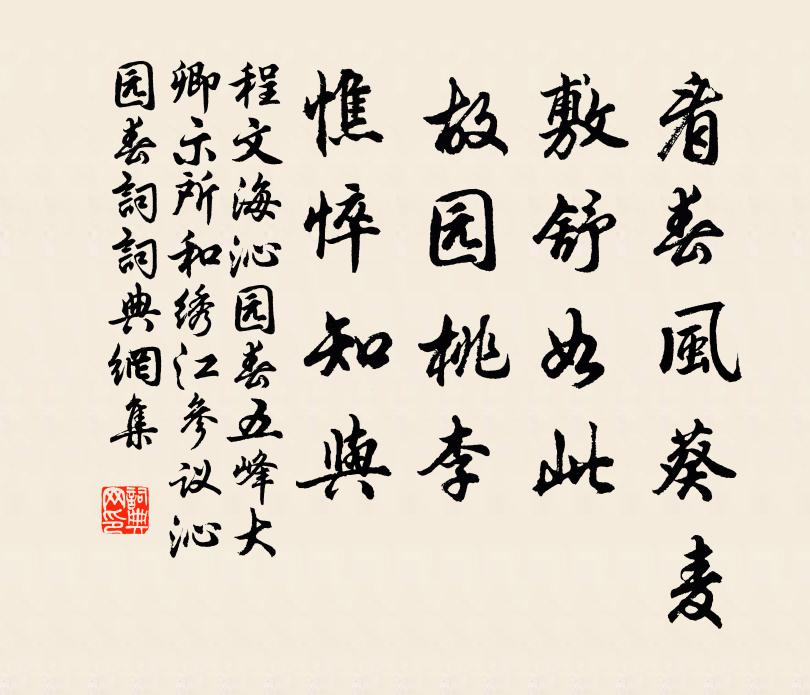 看春風葵麦
敷舒如此
故园桃李
憔悴知與
程文海沁园春五峰大
卿示所和绣江參议沁
园春詞詞典網集
詞典网印